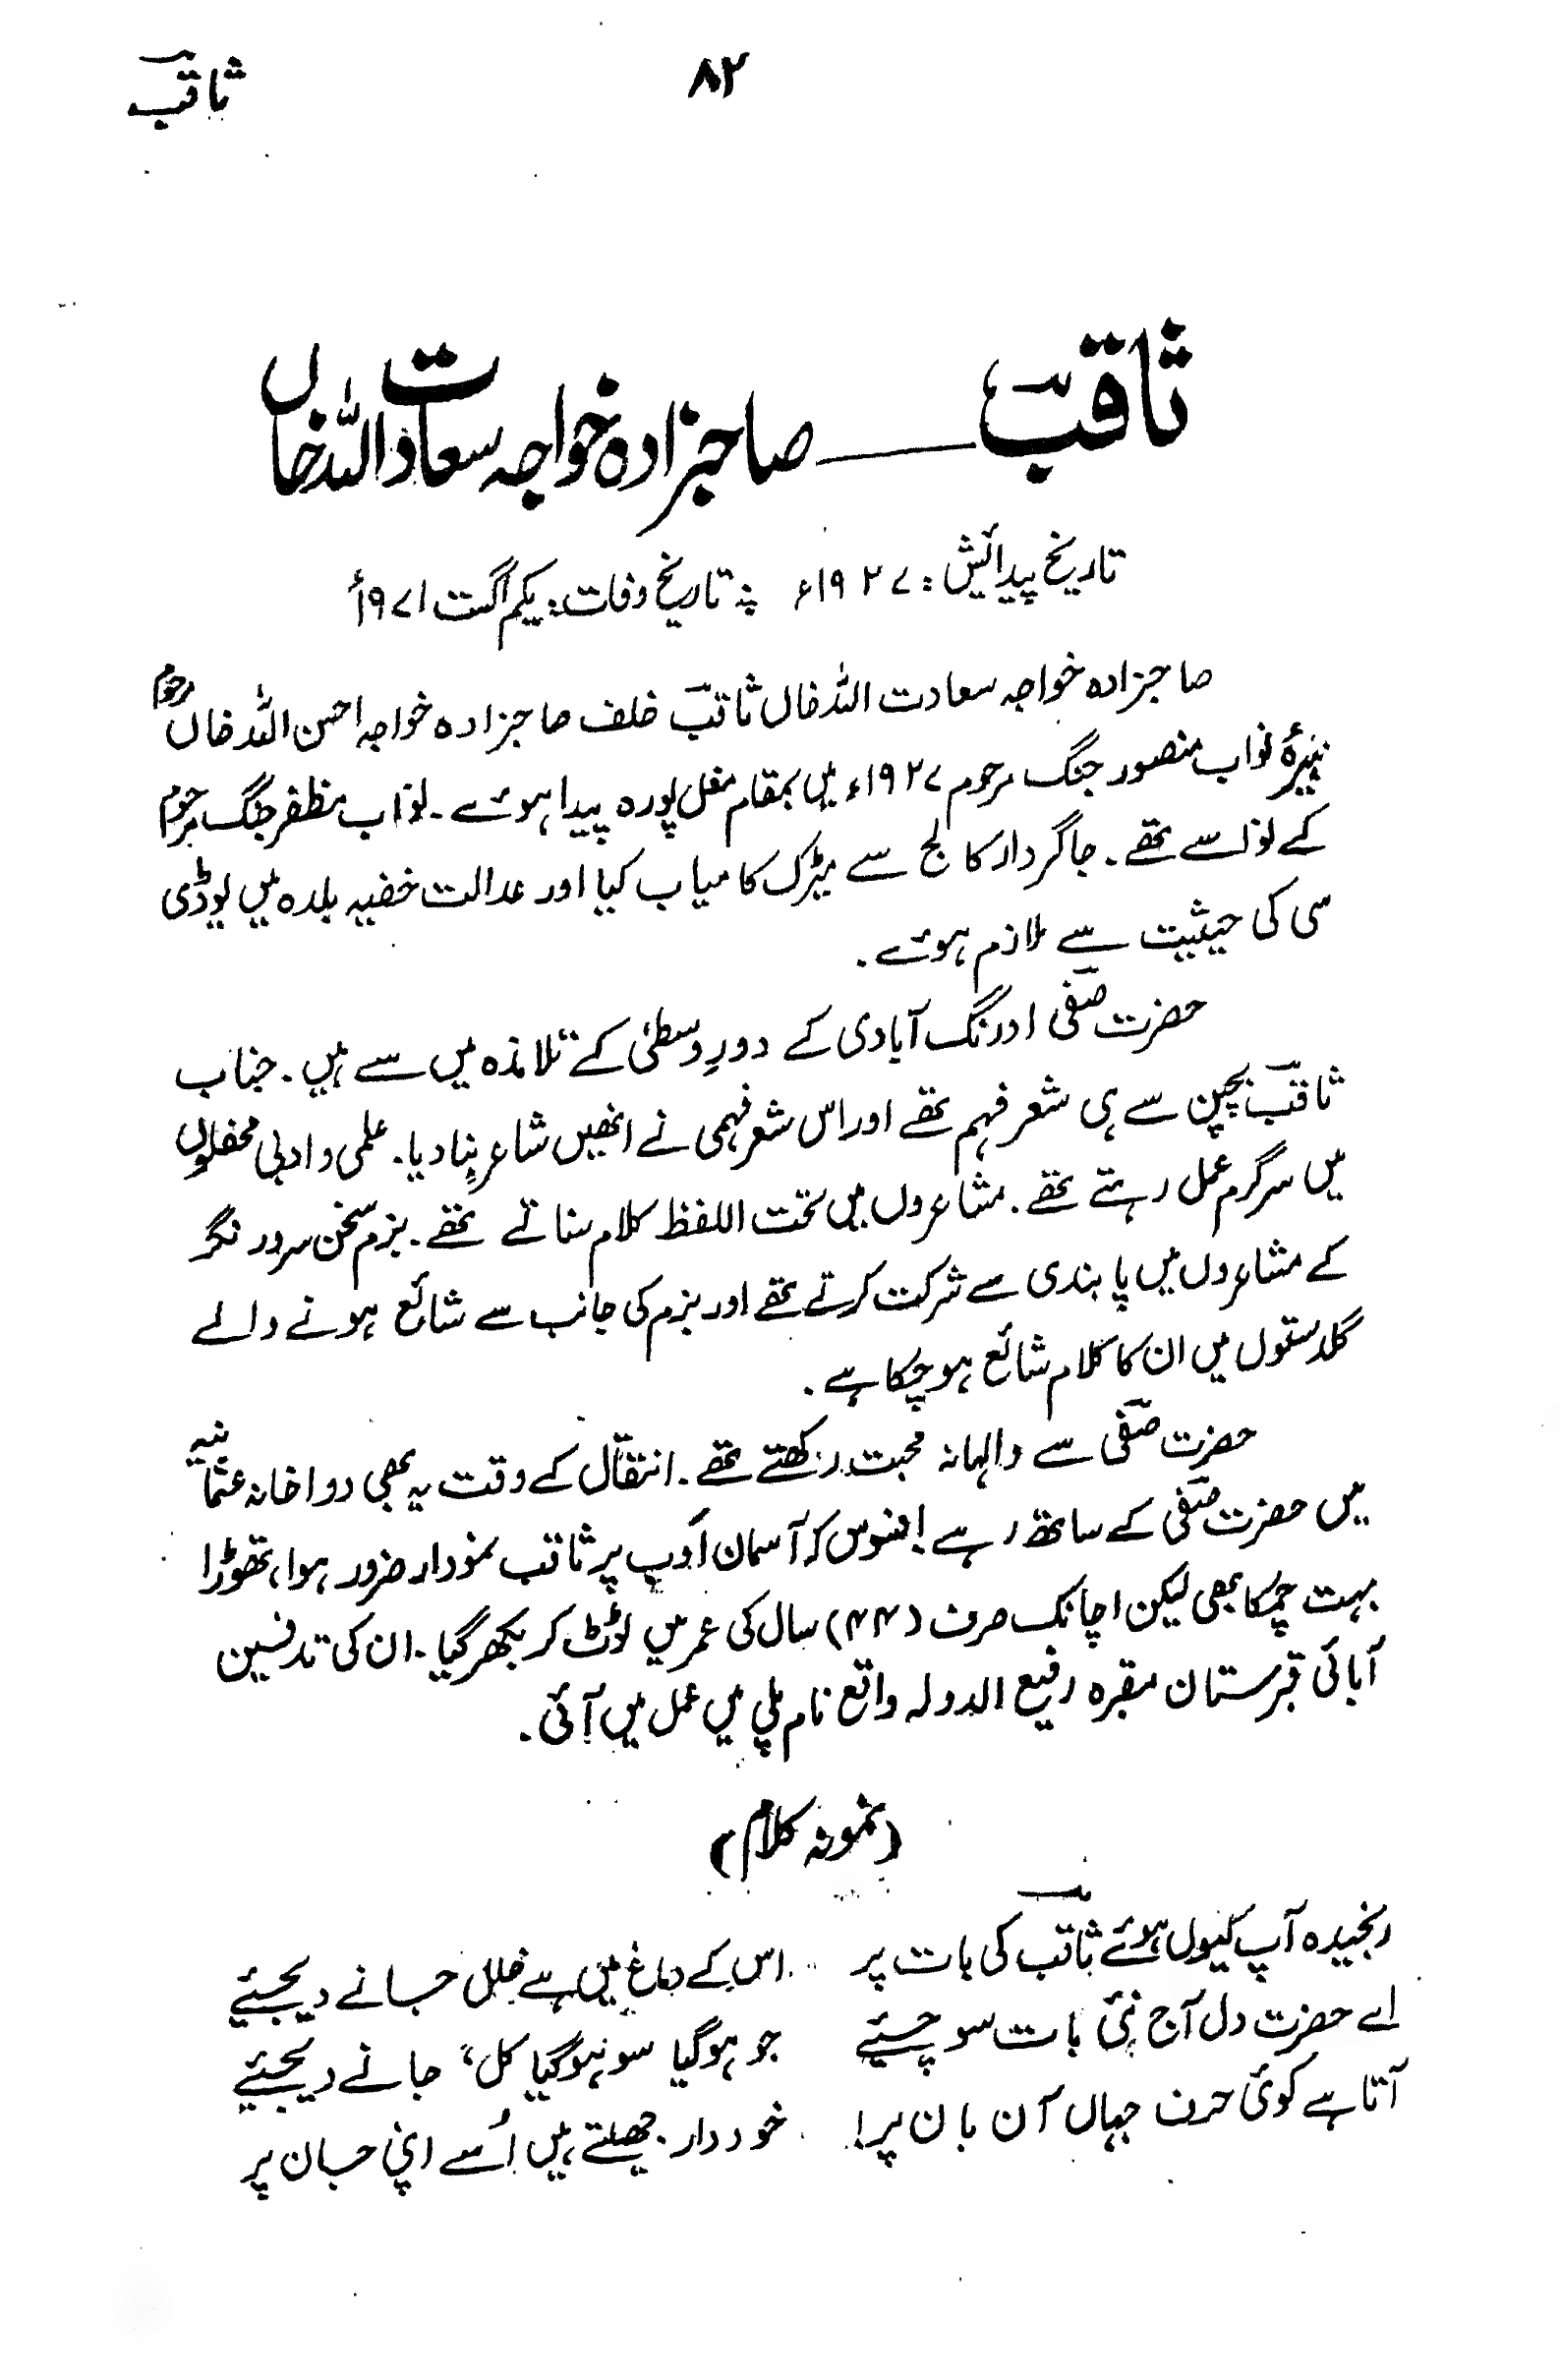 ۸۲
ثاقبؔ
ثاقبؔ ـــــ صاحبزادہ خواجہ سعادت اللہ خاں
تاریخ پیدائش: ۱۹۲۷ء ؞ تاریخ وفات: یکم اگست ۱۹۷۱ء
صاحبزادہ خواجہ سعادت اللہ خاں ثاقبؔ خلف صاحبزادہ خواجہ احسن اللہ خاں مرحوم
نبیرۂ نواب منصور جنگ مرحوم ۱۹۲۷ء میں بمقام مغل پورہ پیدا ہوئے۔ نواب مظفر جنگ مرحوم
کے نواسے تھے۔ جاگردار کالج سے میٹرک کامیاب کیا اور عدالت خفیہ بلدہ میں یوڈی
سی کی حیثیت سے ملازم ہوئے۔
حضرت صفیؔ اورنگ آبادی کے دورِ وسطیٰ کے تلامذہ میں سے ہیں۔ جناب
ثاقبؔ بچپن سے ہی شعر فہم تھے اور اس شعر فہمی نے انھیں شاعر بنا دیا۔ علمی و ادبی محفلوں
میں سرگرم عمل رہتے تھے۔ مشاعروں میں تحت اللفظ کلام سناتے تھے۔ بزم سخن سرور نگر
کے مشاعروں میں پابندی سے شرکت کرتے تھے اور بزم کی جانب سے شائع ہونے والے
گلدستوں میں ان کا کلام شائع ہو چکا ہے۔
حضرت صفیؔ سے والہانہ محبت رکھتے تھے۔ انتقال کے وقت یہ بھی دواخانہ عثمانیہ
میں حضرت صفیؔ کے ساتھ رہے افسوس کہ آسمان ادب پر ثاقب نمودار ضرور ہوا، تھوڑا
بہت چمکا بھی لیکن اچانک صرف (۴۴) سال کی عمر میں ٹوٹ کر بکھر گیا۔ ان کی تدفین
آبائی قبرستان مقبرہ رفیع الدولہ واقع نام پلی میں عمل میں آئی۔
(نمونہ کلام)
رنجیدہ آپ کیوں ہوئے ثاقبؔ کی بات پر اس کے دماغ میں ہے خلل جانے دیجئیے
اے حضرت دل آج نئی بات سوچئیے جو ہو گیا سو ہو گیا کل، جانے دیجئیے
آتا ہے کوئی حرف جہاں آن بان پر! خوددار جھیلتے ہیں اُسے اپنی جان پر